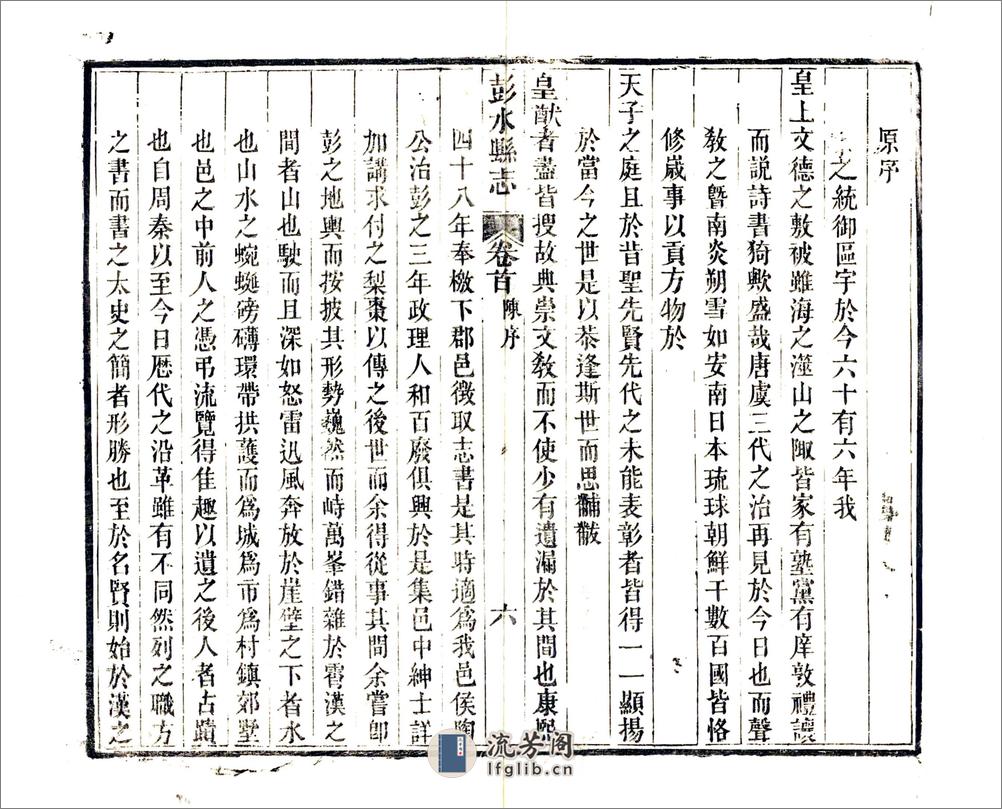 原序
之統御區宇於今六十有六年我
皇上文德之敷被雖海之澨山之陬皆家有塾黨有庠敦禮讓
而說詩書猗歟盛哉唐虞三代之治再見於今日也而聲
敎之曁南炎朔雪如安南日本琉球朝鮮千數百國皆恪
修歲事以貢方物於
天子之庭且於昔聖先賢先代之未能表彰者皆得一一顯揚
於當今之世是以恭逢斯世而思黼黻
皇猷者盡皆搜故典崇文敎而不使少有遺漏於其間也康熙
彭水縣志 卷首 陳序 六
四十八年奉檄下郡邑徵取志書是其時適爲我邑侯陶
公治彭之三年政理人和百廢俱興於是集邑中紳士詳
加講求付之梨棗以傳之後世而余得從事其間余嘗卽
彭之地輿而按披其形勢巍然而峙萬峯錯雜於霄漢之
間者山也駛而且深如怒雷迅風奔放於崖壁之下者水
也山水之蜿蜒磅礴環帶拱護而爲城爲市爲村鎭郊墅
也邑之中前人之憑弔流覽得佳趣以遺之後人者古蹟
也自周秦以至今日歷代之沿革雖有不同然列之職方
之書而書之太史之簡者形勝也至於名賢則始於漢之
流芳阁
lfglib.cn